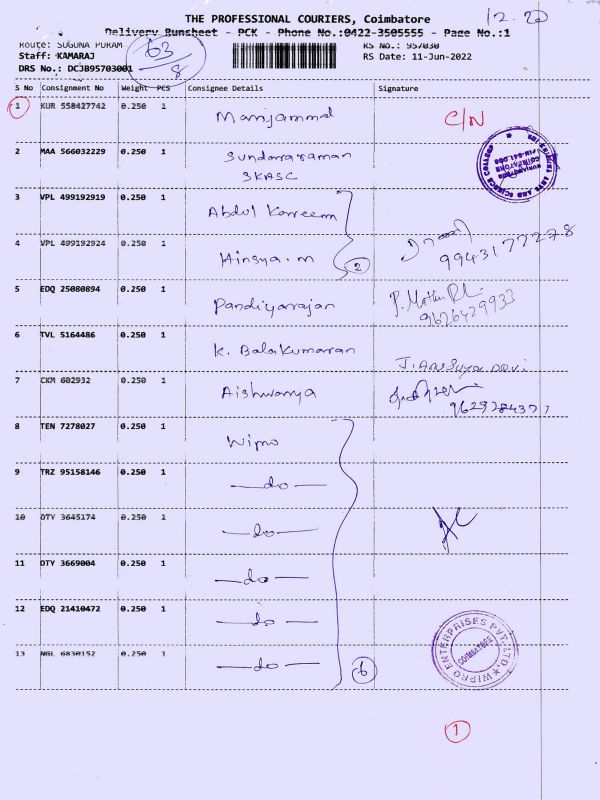 THE PROFESSIONAL COURIERS, Coimbatore
12.20
Delivery Runsheet - PCK - Phone No.:0422-3505555 - Page No.:1
Route: SUGUNA PURAM
63/8
RS No.: 957030
Staff: KAMARAJ
RS Date: 11-Jun-2022
DRS No.: DCJB95703001
S No Consignment No Weight PCS Consignee Details Signature
1 KUR 558427742 0.250 1 Marijammal C/N
2 MAA 566032229 0.250 1 Sundararaman
SKASC
SRI KRISHNA ARTS AND SCIENCE COLLEGE
COIMBATORE
3 VPL 499192919 0.250 1 Abdul Kareem
4 VPL 499192924 0.250 1 Hinsya.m 2 9943177278
5 EDQ 25080894 0.250 1 Pandiyarajan
9626429933
6 TVL 5164486 0.250 1 K. Balakumaran
7 CKM 602932 0.250 1 Aishwarya
8 TEN 7278027 0.250 1 Wipro
9 TRZ 95158146 0.250 1 —do—
10 OTY 3645174 0.250 1 —do—
11 OTY 3669004 0.250 1 —do—
12 EDQ 21410472 0.250 1 —do—
13 NGL 6830152 0.250 1 —do— 6
WIPRO ENTERPRISES PVT. LTD.
COIMBATORE
1